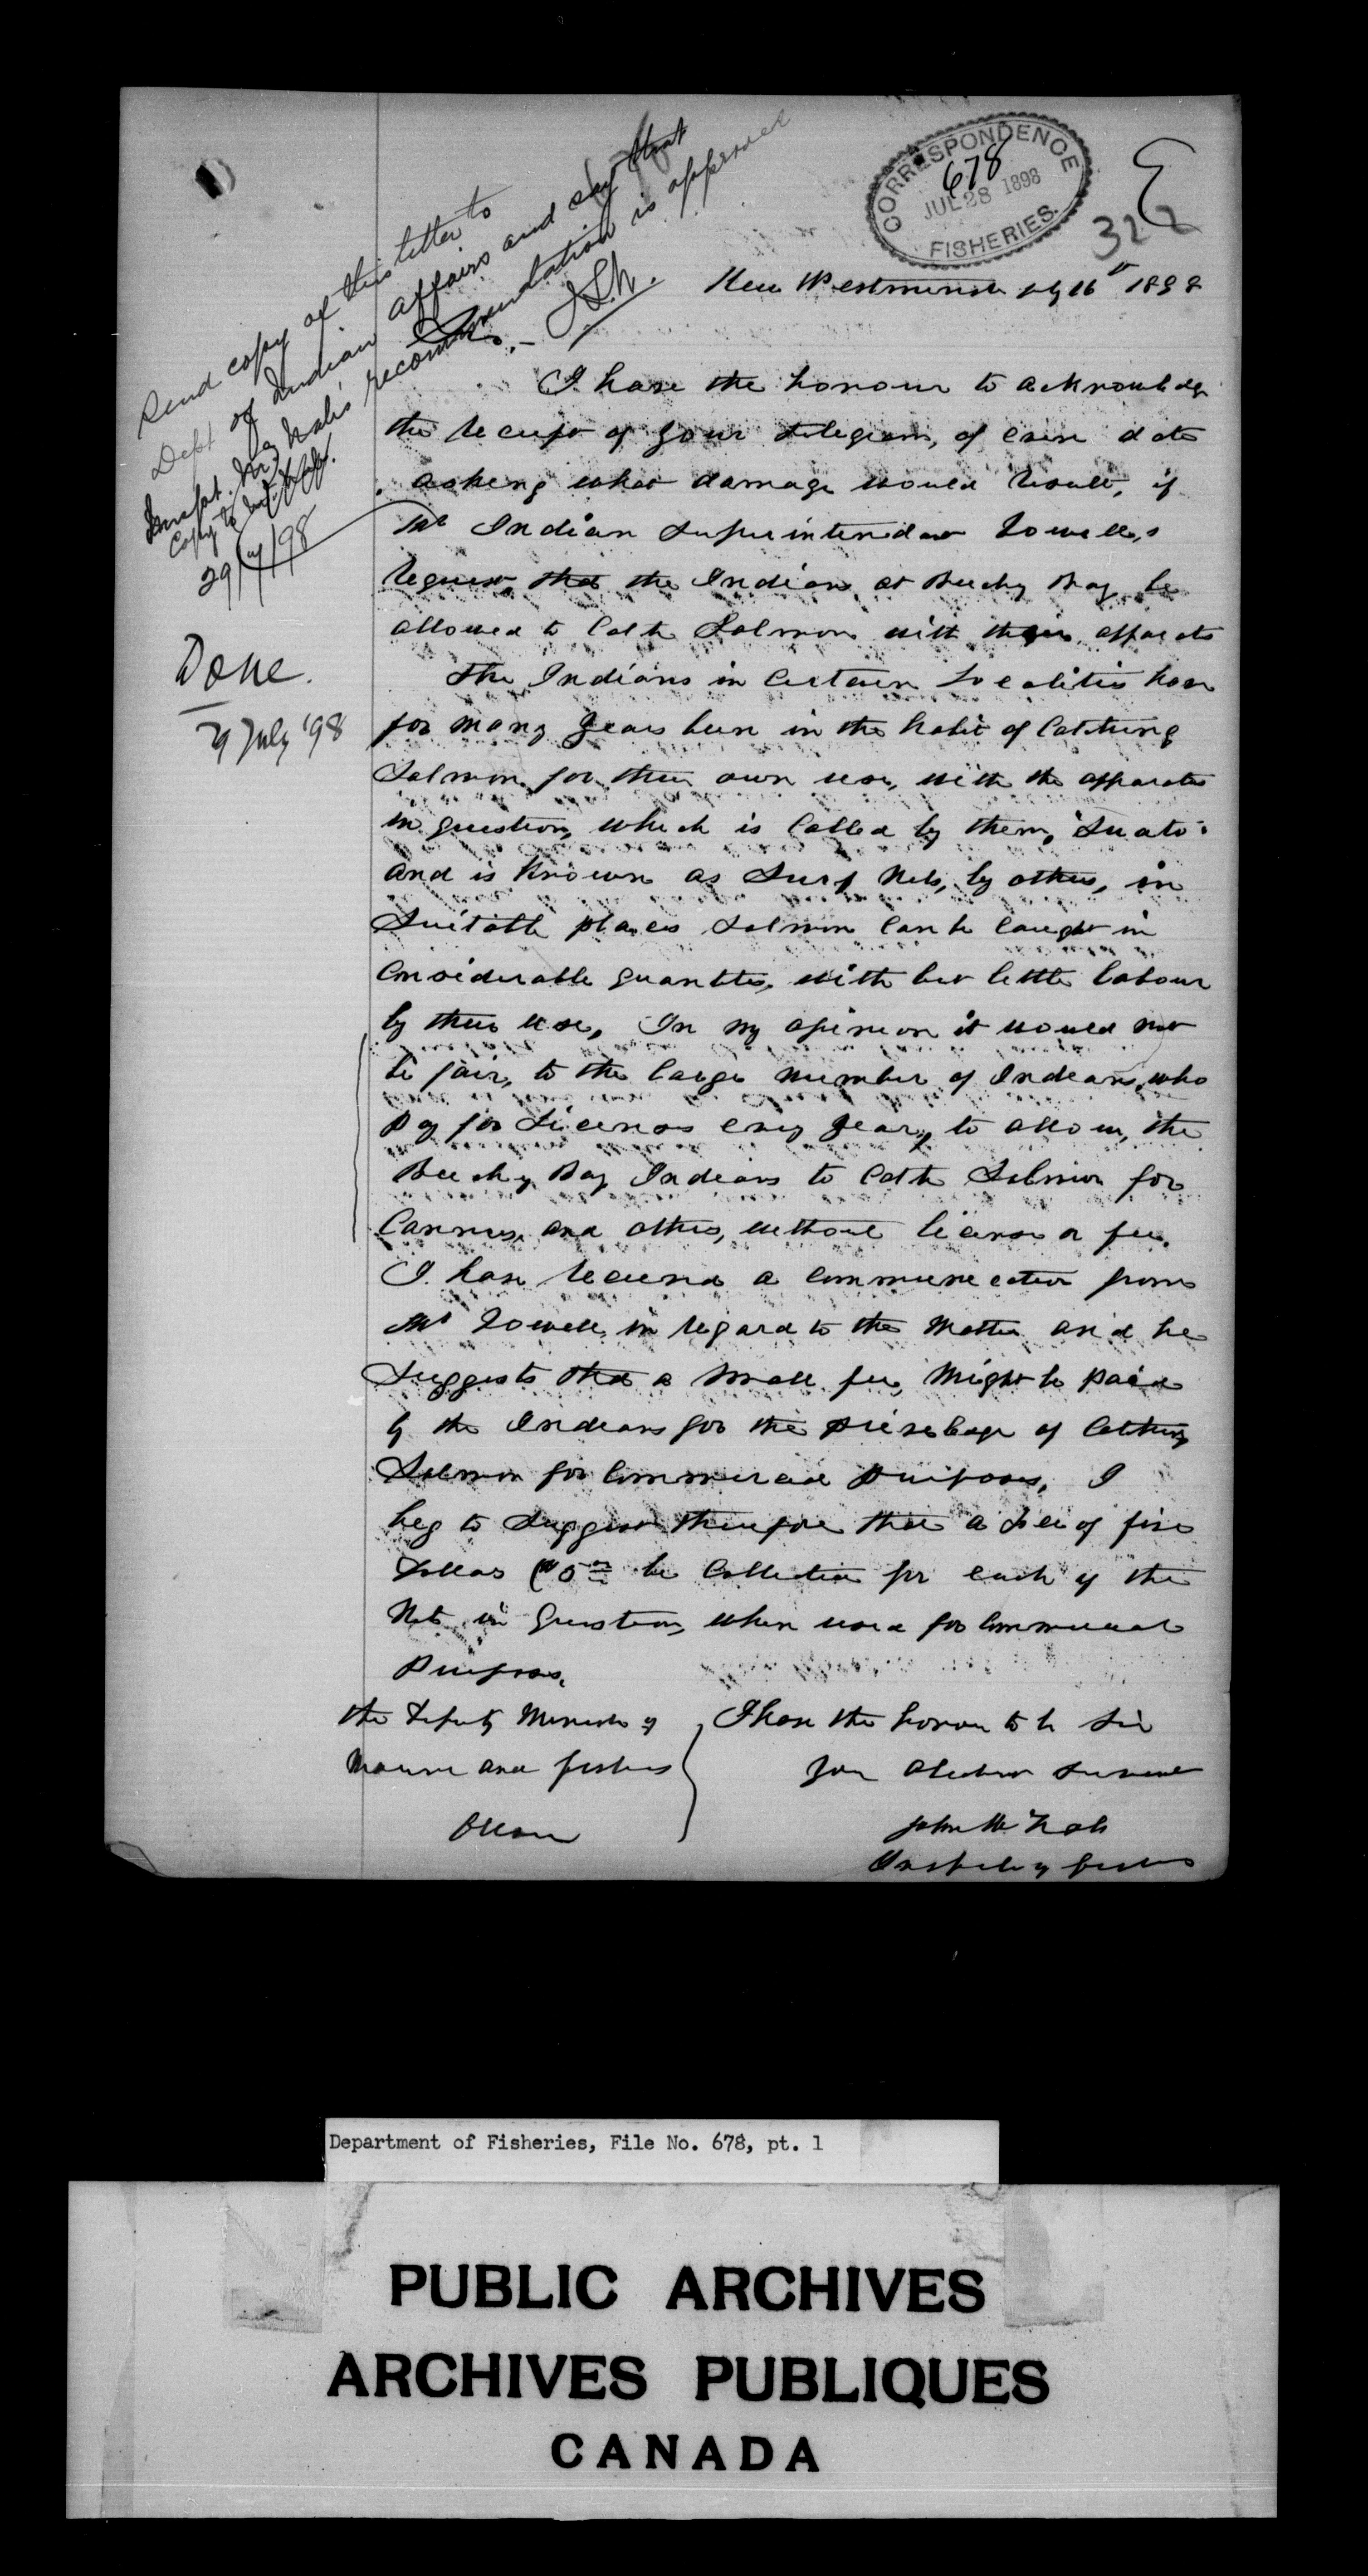 CORRESPONDENCE
678
JUL 28 1898
FISHERIES.
32
Send copy of this letter to
Dept of Indian Affairs and say that
Inspr. McNab's recommendation is approved
Copy to
29/7/98
Done.
29 July '98
New Westminster 16th 1898
I have the honour to acknowledge
the receipt of your telegram, of even date
asking what damage would result, if
Mr Indian Superintendent Vowell,s
request, that the Indians at Beechy Bay be
allowed to catch Salmon with their apparats
The Indians in certain Localities have
for many years been in the habit of Catching
Salmon for their own use, with the apparats
in question, which is Called by them,
and is Known as Surf Nets, by others, in
Suitable places Salmon can be caught in
Considerable quantites, with but little labour
by their use, In my opinion it would not
be fair, to the large number of Indians, who
pay for Licenses every year, to allow, the
Beechy Bay Indians to Catch Salmon for
Canners, and others, without license or fee.
I have received a communication from
Mr Vowell, in regard to the Matter and he
Suggests that a small fee, Might be paid
by the Indians for the privelage of Catching
Salmon for Commercial purposes, I
beg to Suggest therefore that a fee of five
Dollars ($5.00 be Collected for each of the
Nets in Question, when used for Commercial
Purposes.
The Deputy Minister of
Marine and fisheries
Ottawa
I have the honour to be Sir
Your Obedient Servant
John McNab
Inspector of fisheries
Department of Fisheries, File No. 678, pt. 1
PUBLIC ARCHIVES
ARCHIVES PUBLIQUES
CANADA